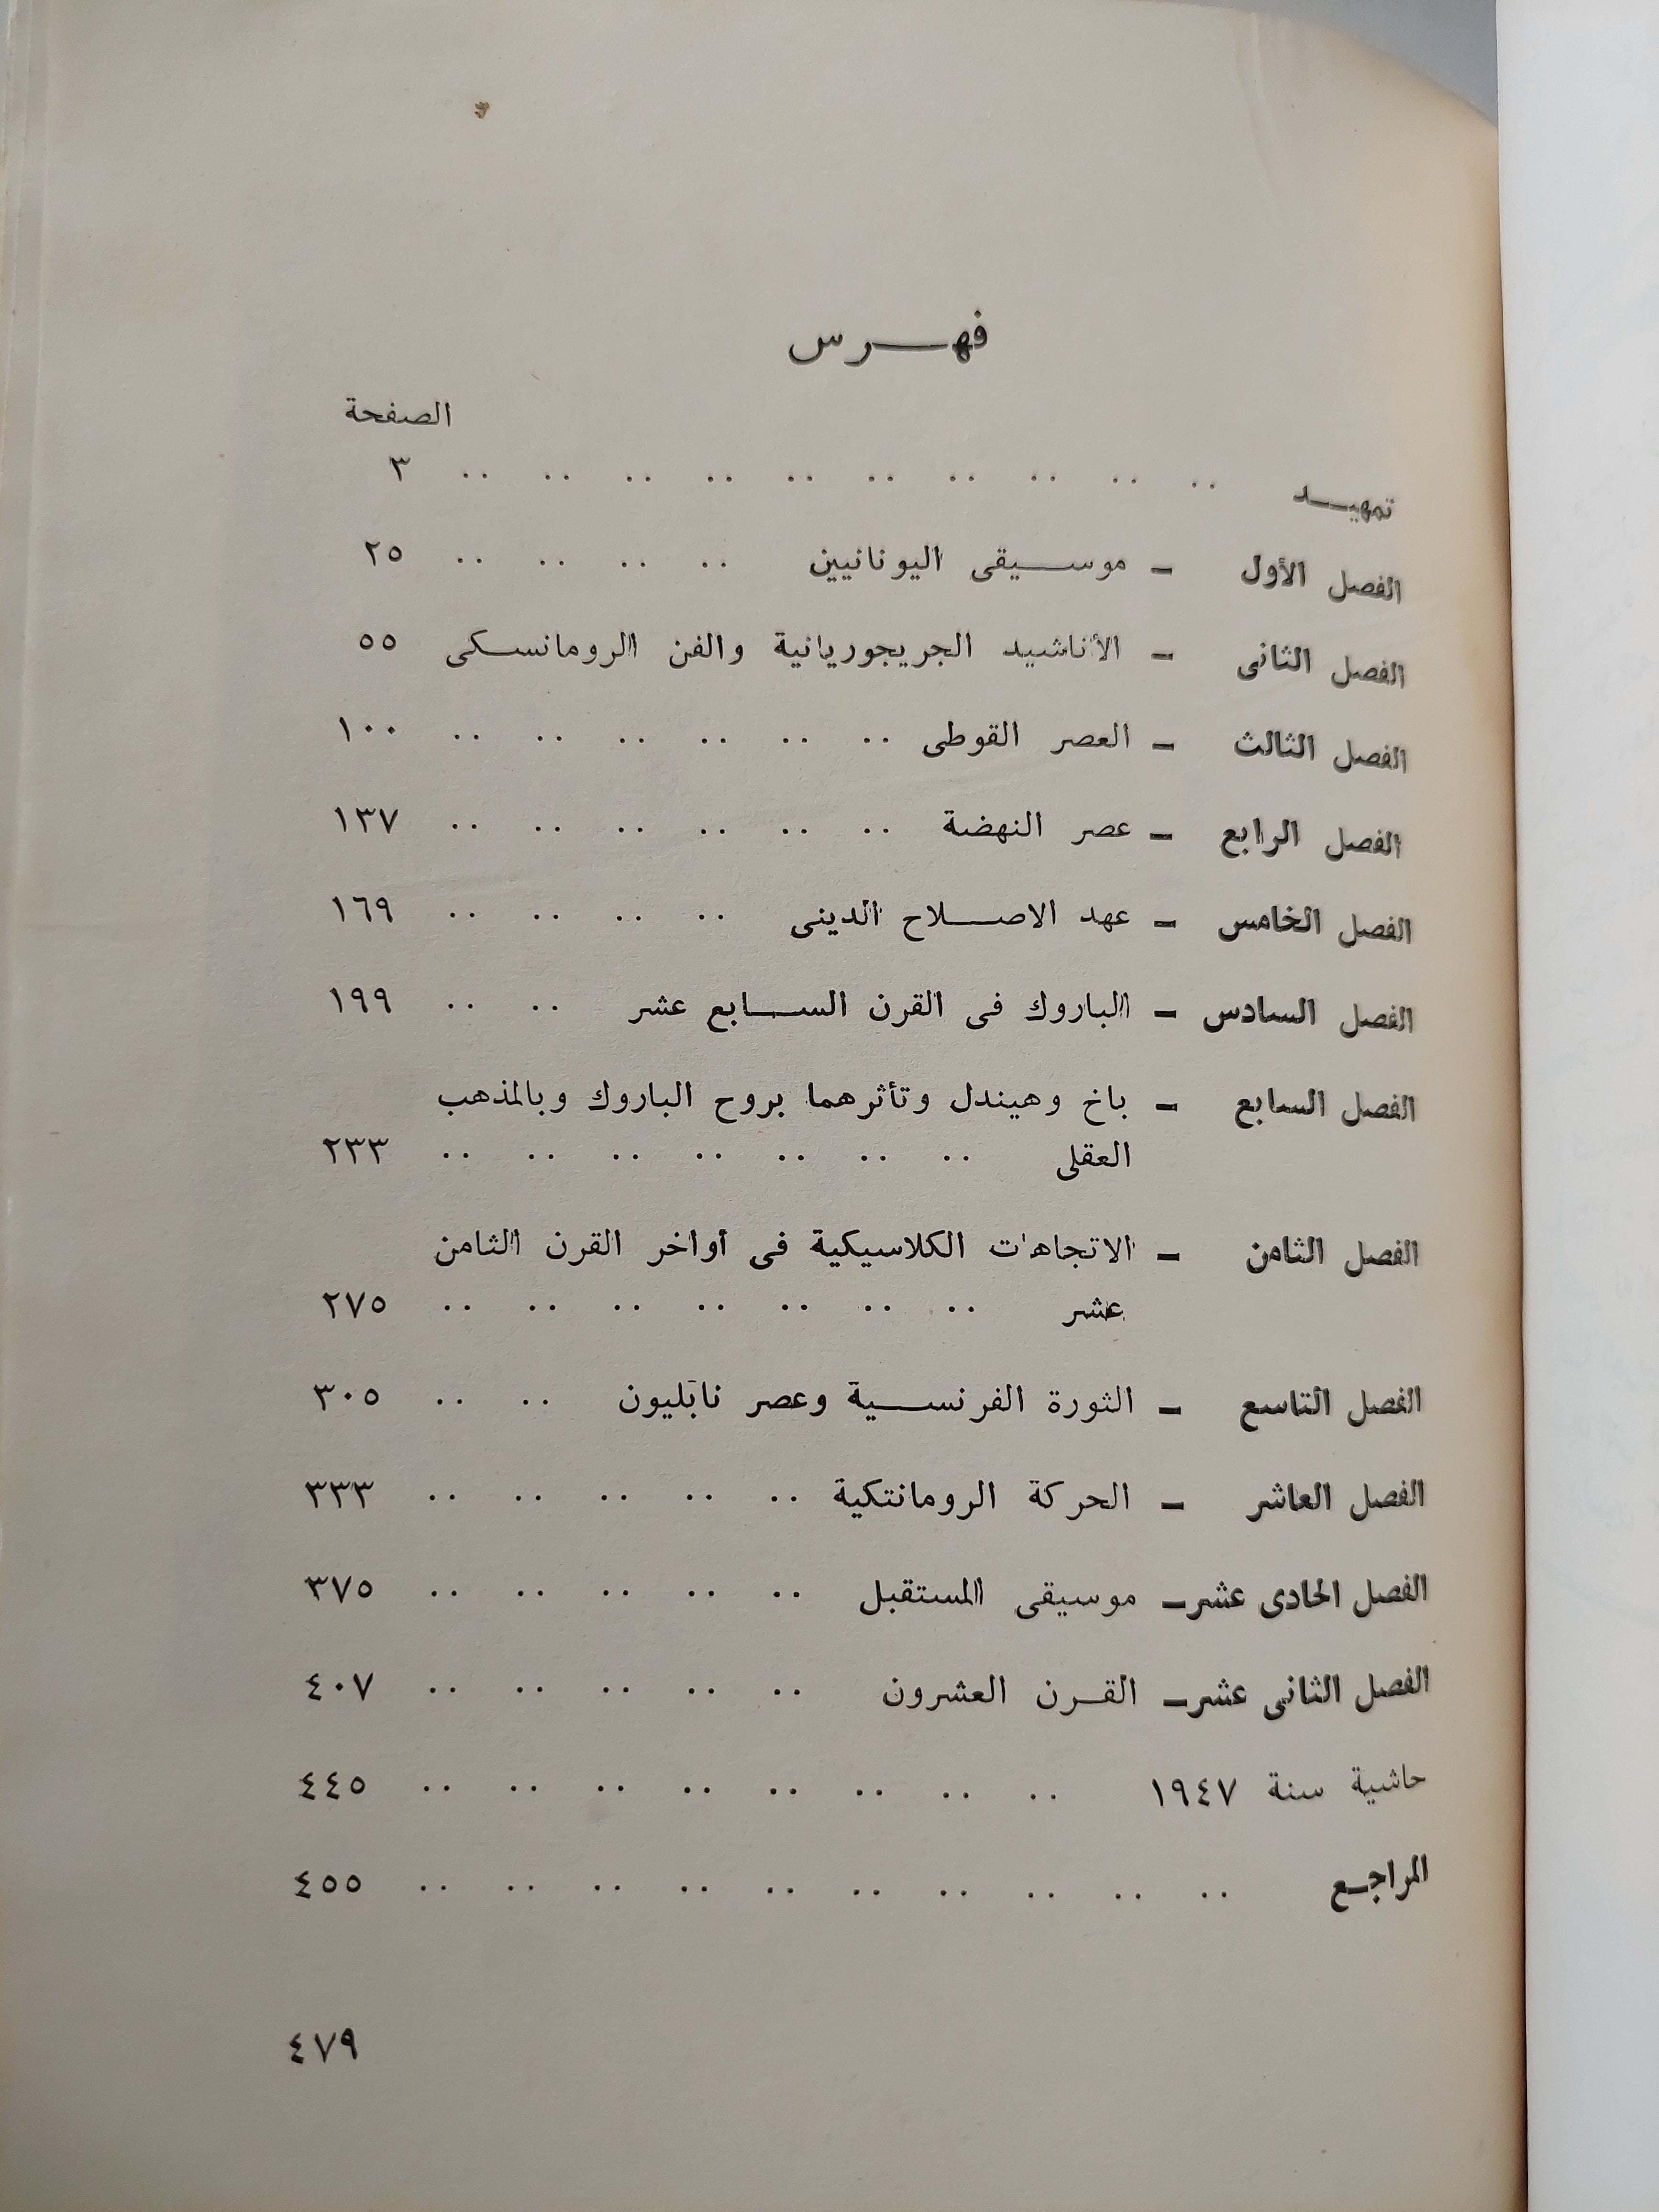 فهرس
الصفحة
تمهيد .. .. .. .. .. .. .. .. .. .. ٣
الفصل الأول – موسيقى اليونانيين .. .. .. .. ٢٥
الفصل الثانى – الأناشيد الجريجوريانية والفن الرومانسكى ٥٥
الفصل الثالث – العصر القوطى .. .. .. .. .. .. ١٠٠
الفصل الرابع – عصر النهضة .. .. .. .. .. .. ١٣٧
الفصل الخامس – عهد الاصلاح الدينى .. .. .. .. ١٦٩
الفصل السادس – الباروك فى القرن السابع عشر .. .. ١٩٩
الفصل السابع – باخ وهيندل وتأثرهما بروح الباروك وبالمذهب
العقلى .. .. .. .. .. .. .. ٢٣٣
الفصل الثامن – الاتجاهات الكلاسيكية فى أواخر القرن الثامن
عشر .. .. .. .. .. .. .. ٢٧٥
الفصل التاسع – الثورة الفرنسية وعصر نابليون .. .. ٣٠٥
الفصل العاشر – الحركة الرومانتكية .. .. .. .. .. ٣٣٣
الفصل الحادى عشر – موسيقى المستقبل .. .. .. .. .. ٣٧٥
الفصل الثانى عشر – القرن العشرون .. .. .. .. .. ٤٠٧
حاشية سنة ١٩٤٧ .. .. .. .. .. .. .. .. ٤٤٥
المراجع .. .. .. .. .. .. .. .. .. .. ٤٥٥
٤٧٩